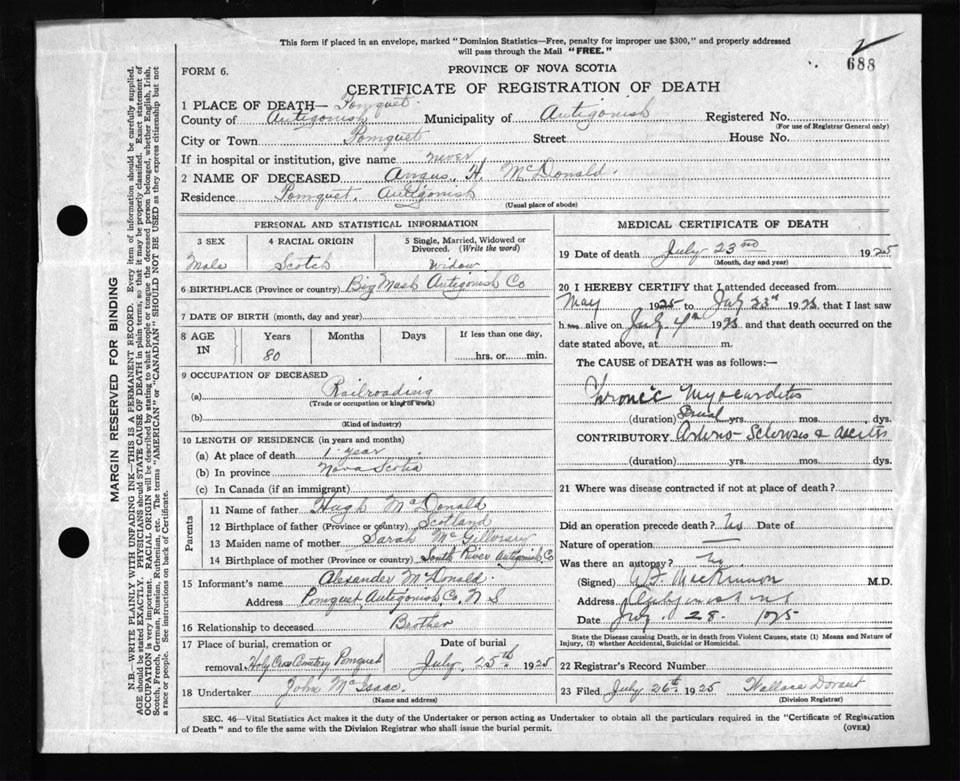 This form if placed in an envelope, marked "Dominion Statistics—Free, penalty for improper use $300," and properly addressed
will pass through the Mail "FREE."
2
688
FORM 6.
PROVINCE OF NOVA SCOTIA
CERTIFICATE OF REGISTRATION OF DEATH
1 PLACE OF DEATH— Pomquet
County of Antigonish Municipality of Antigonish Registered No.
(For use of Registrar General only)
City or Town Pomquet Street House No.
If in hospital or institution, give name never
2 NAME OF DECEASED Angus H McDonald.
Residence Pomquet, Antigonish
(Usual place of abode)
PERSONAL AND STATISTICAL INFORMATION
3 SEX 4 RACIAL ORIGIN 5 Single, Married, Widowed or Divorced. (Write the word)
Male Scotch Widow
6 BIRTHPLACE (Province or country) Big Mash Antigonish Co
7 DATE OF BIRTH (month, day and year)
8 AGE IN Years Months Days If less than one day,
80 hrs. or min.
9 OCCUPATION OF DECEASED
(a) Railroading
(Trade or occupation or kind of work)
(b)
(Kind of industry)
10 LENGTH OF RESIDENCE (in years and months)
(a) At place of death 1 year
(b) In province Nova Scotia
(c) In Canada (if an immigrant)
Parents
11 Name of father Hugh McDonald
12 Birthplace of father (Province or country) Scotland
13 Maiden name of mother Sarah McGillvrary
14 Birthplace of mother (Province or country) South River Antigonish Co
15 Informant's name Alexander McDonald.
Address Pomquet, Antigonish Co, N S
16 Relationship to deceased Brother
17 Place of burial, cremation or Date of burial
removal Holy Cross Cemetery Pomquet July, 25th 1925
18 Undertaker John McIsaac.
(Name and address)
MEDICAL CERTIFICATE OF DEATH
19 Date of death July 23rd 1925
(Month, day and year)
20 I HEREBY CERTIFY that I attended deceased from
May 1925 to July 23rd 1925 that I last saw
him alive on July 4th 1925 and that death occurred on the
date stated above, at m.
The CAUSE of DEATH was as follows:—
Chronic Myocarditis
(duration) yrs. mos. dys.
CONTRIBUTORY. Arterio-Sclerosis & ascites
(duration) yrs. mos. dys.
21 Where was disease contracted if not at place of death?
Did an operation precede death? No Date of
Nature of operation —
Was there an autopsy? No
(Signed) MacKinnon M.D.
Address Antigonish N S
Date July 28. 1925
State the Disease causing Death, or in death from Violent Causes, state (1) Means and Nature of
Injury, (2) whether Accidental, Suicidal or Homicidal.
22 Registrar's Record Number
23 Filed July 26th 1925 Wallace
(Division Registrar)
SEC. 46—Vital Statistics Act makes it the duty of the Undertaker or person acting as Undertaker to obtain all the particulars required in the "Certificate of Registration
of Death" and to file the same with the Division Registrar who shall issue the burial permit.
(OVER)
MARGIN RESERVED FOR BINDING
N.B.—WRITE PLAINLY WITH UNFADING INK—THIS IS A PERMANENT RECORD. Every item of information should be carefully supplied.
AGE should be stated EXACTLY. PHYSICIANS should STATE CAUSE OF DEATH in plain terms, so that it may be properly classified. Exact statement of
OCCUPATION is very important. RACIAL ORIGIN will be described by stating to what people or tongue the deceased person belonged, whether English, Irish,
Scotch, French, German, Russian, Ruthenian, etc. The terms "AMERICAN" or "CANADIAN" SHOULD NOT BE USED as they express citizenship but not
a race or people. See instructions on back of Certificate.